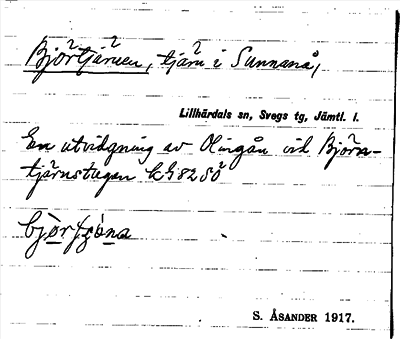 Björtjärnen, tjärn i Sunnanå,
Lillhärdals sn, Svegs tg, Jämtl. l.
En utvidgning av Olingån vid Björn-
tjärnstugan
S. ÅSANDER 1917.